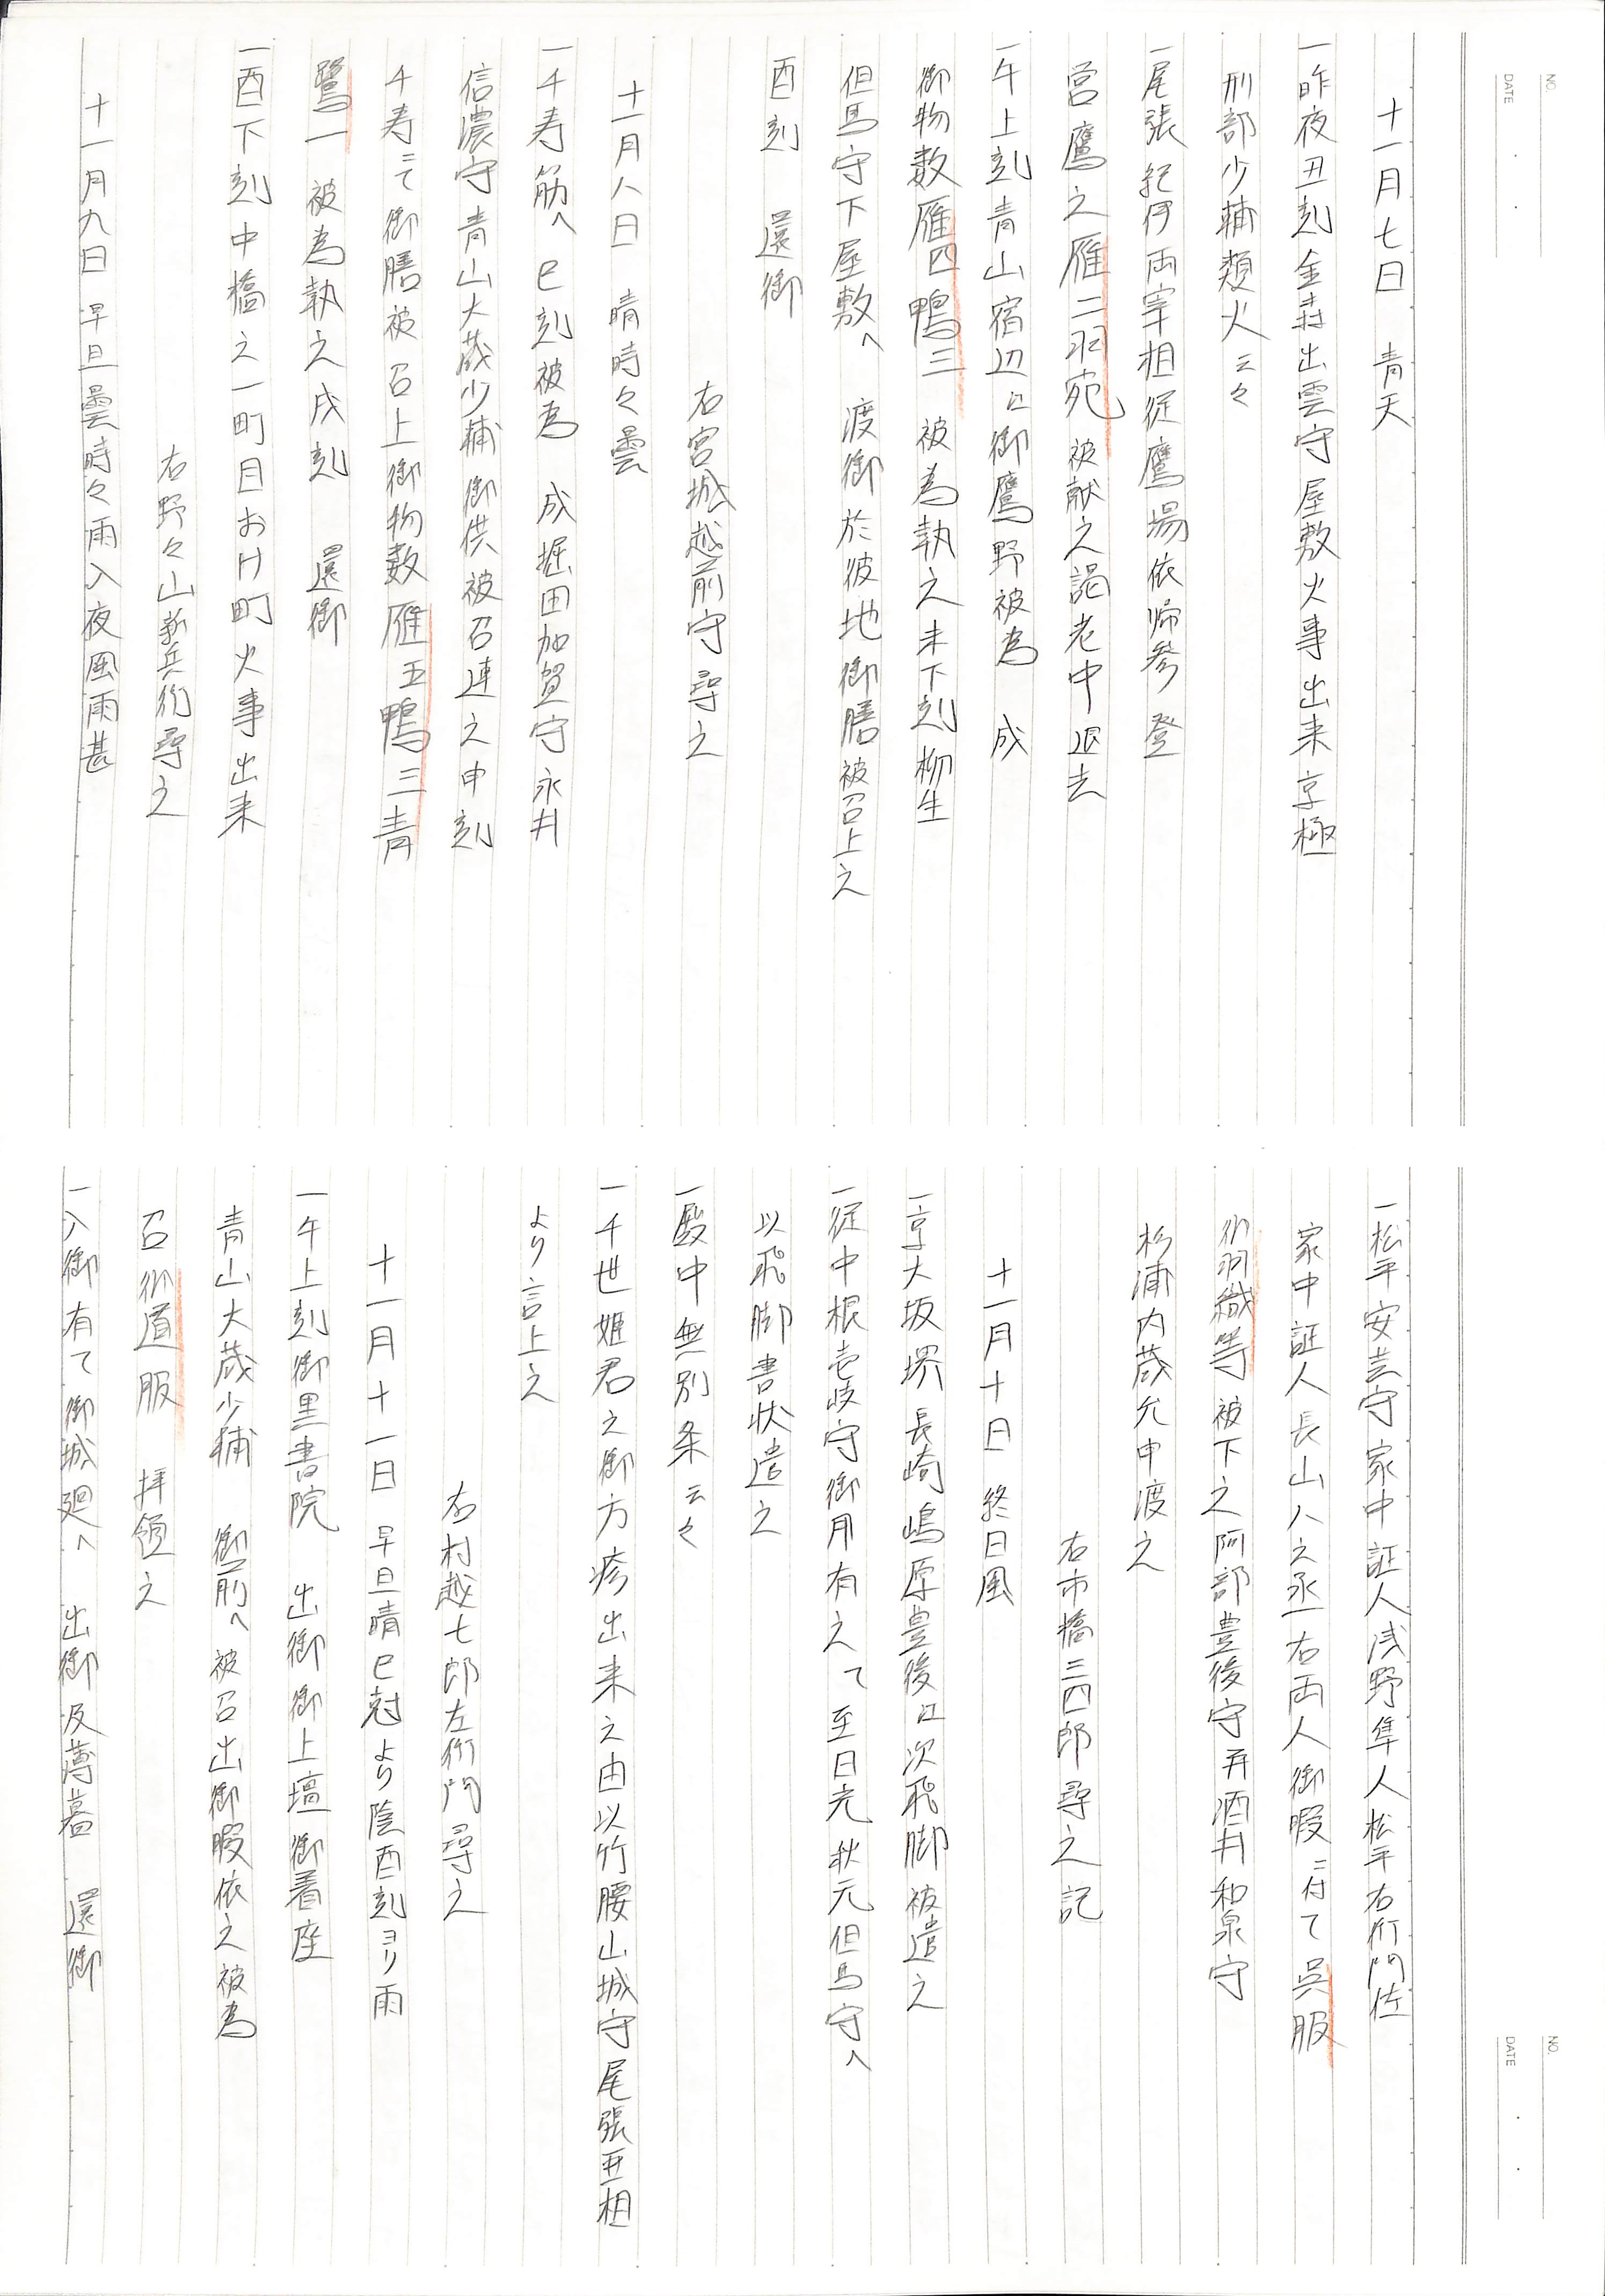 NO.
DATE
十一月七日 青天
一昨夜丑刻金森出雲守屋敷火事出来京極
刑部少輔類火云々
一尾張紀伊両宰相従鷹場依帰参 登
宮鷹之雁二羽宛被献之謁老中退去
一午上刻青山宿辺江御鷹野被為 成
御物数雁四鴨三 被為執之未下刻柳生
但馬守下屋敷へ 渡御於彼地御膳被召上之
酉刻 還御
右宮城越前守尋之
十一月八日 晴時々曇
一千寿筋へ巳刻被為 成堀田加賀守永井
信濃守青山大蔵少輔御供被召連之申刻
千寿ニて御膳被召上御物数雁五鴨三青
鷺一 被為執之戌刻 還御
一酉下刻中橋之一町目おけ町火事出来
右野々山新兵衛尋之
十一月九日 早旦曇時々雨入夜風雨甚
NO.
DATE
一松平安芸守家中証人浅野隼人松平右衛門佐
家中証人長山八之丞右両人御暇ニ付て呉服
并羽織等被下之阿部豊後守并酒井和泉守
杉浦内蔵允申渡之
右市橋三四郎尋之記
十一月十日 終日風
一京大坂堺長崎嶋原豊後江次飛脚被遣之
一従中根壱岐守御用有之て至日光秋元但馬守へ
以飛脚書状遣之
一殿中無別条云々
一千世姫君之御方疹出来之由以竹腰山城守尾張亜相
より言上之
右村越七郎左衛門尋之
十一月十一日 早旦晴巳尅より陰酉刻ヨリ雨
一午上刻御黒書院 出御御上壇御着座
青山大蔵少輔 御前へ被召出御暇依之被為
召并道服 拝領之
一入御有て御城廻へ 出御及薄暮 還御